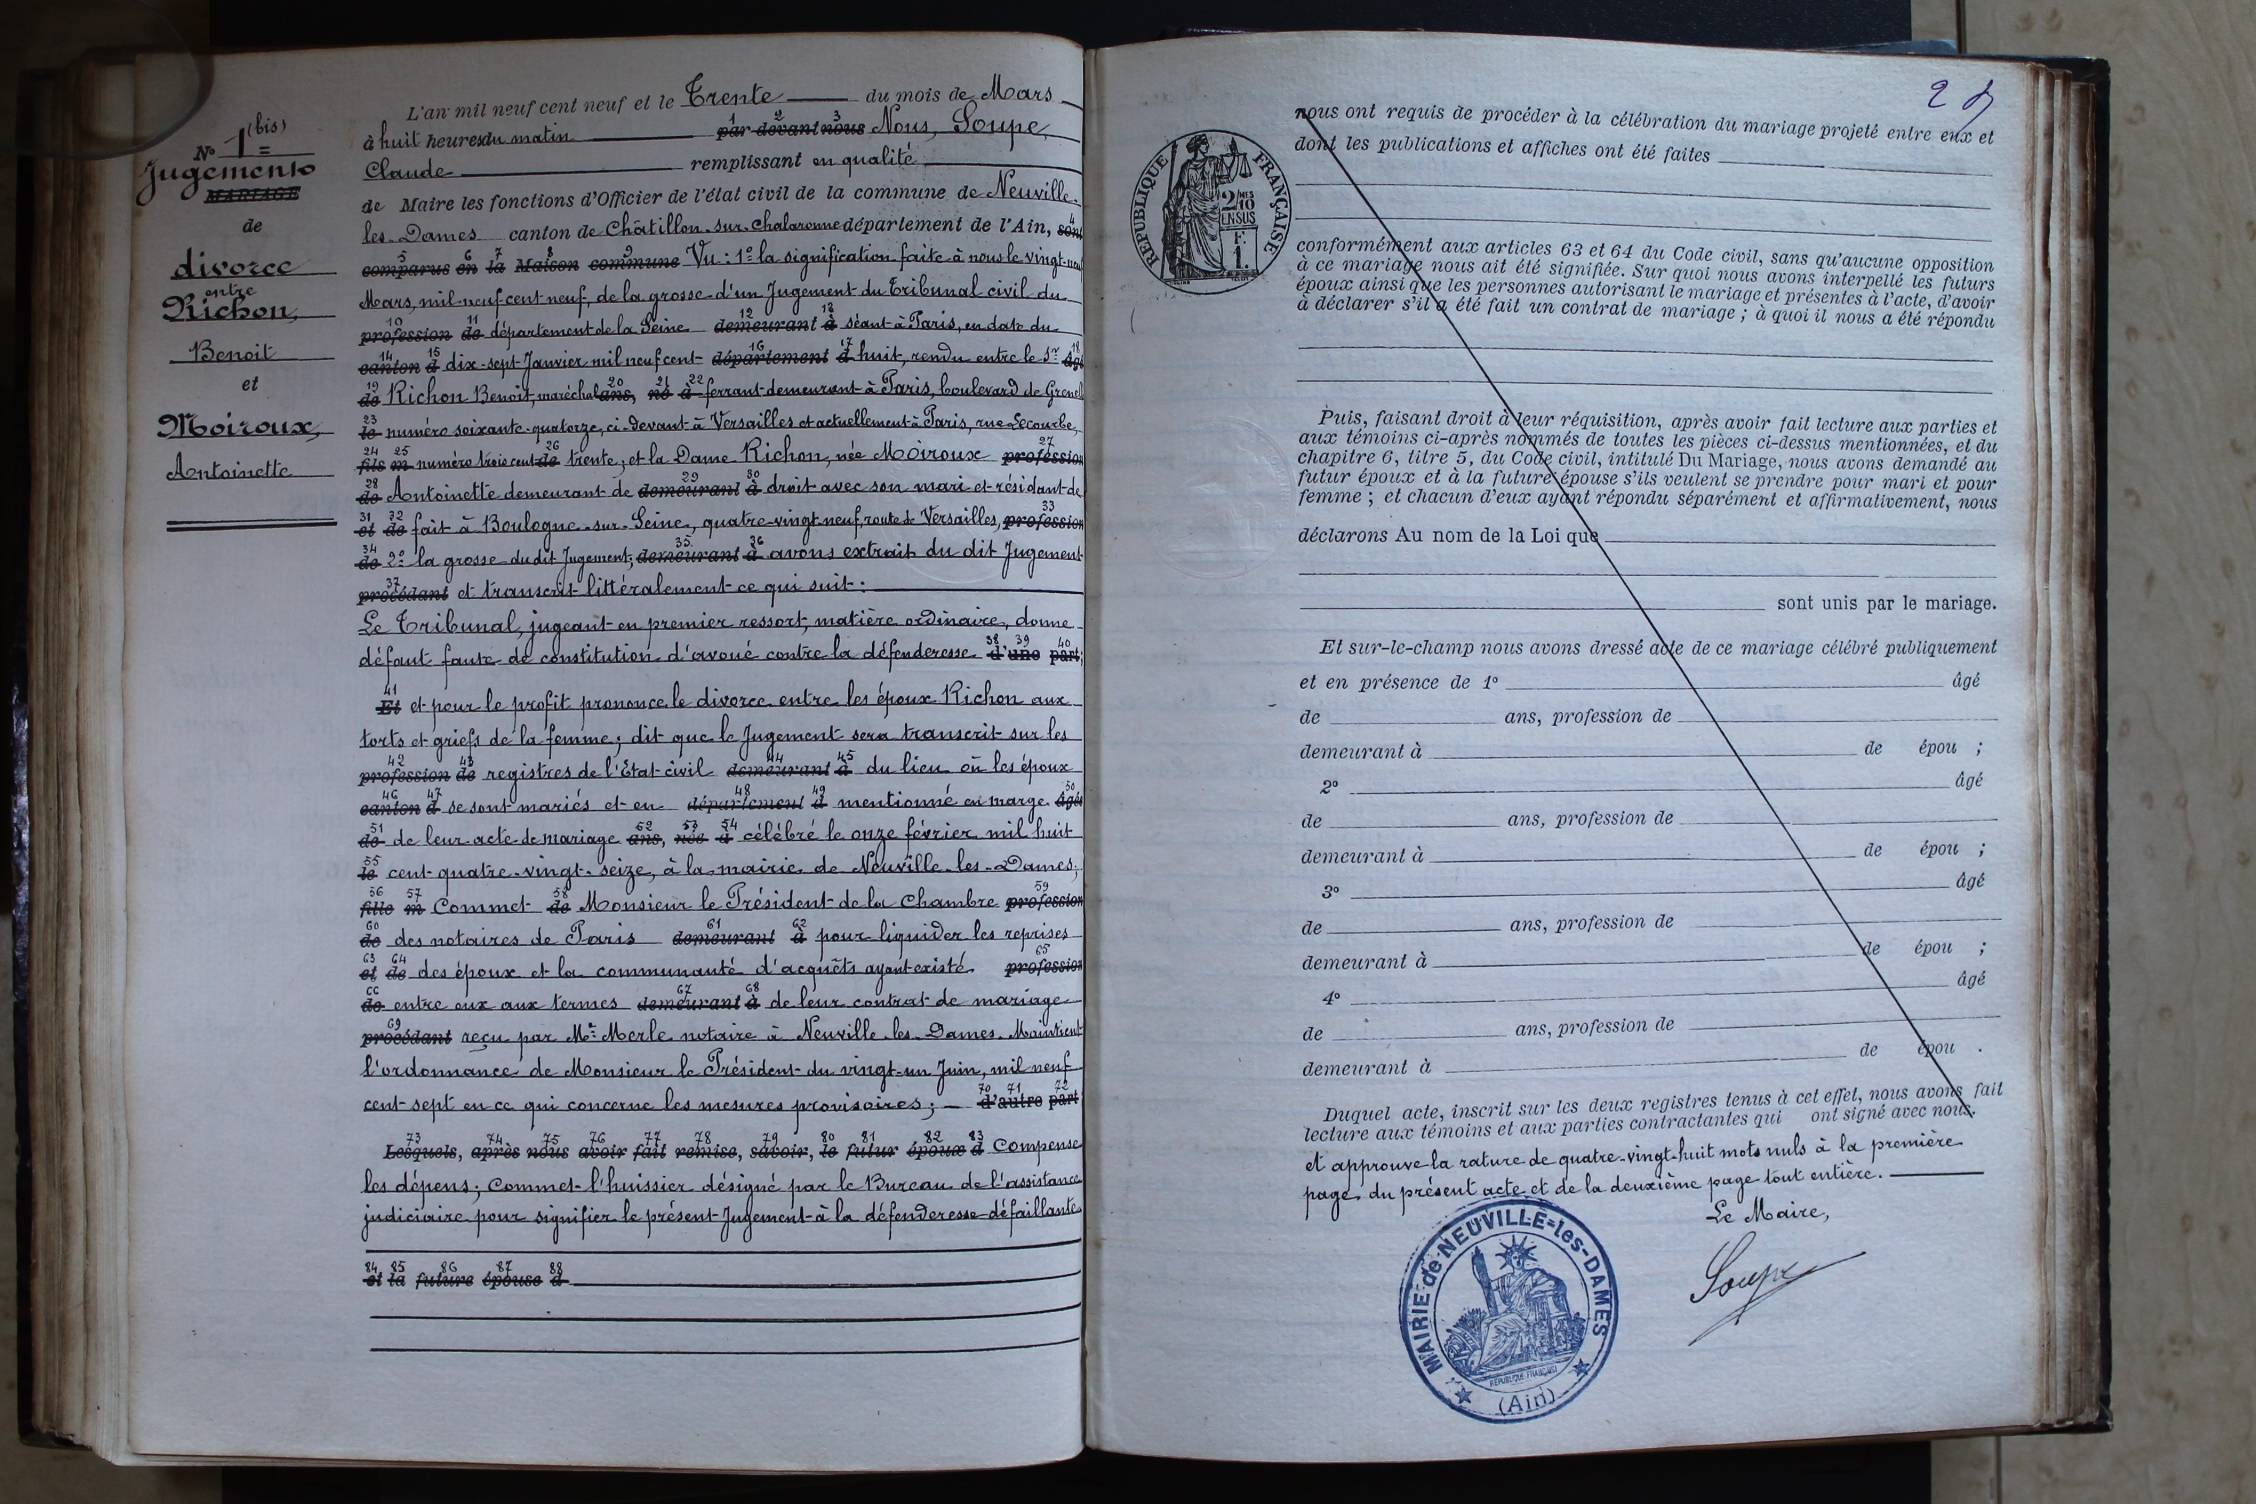 N° 1 (bis)
Jugement
MARIAGE
de
divorce
entre
Richon,
Benoit
et
Moiroux,
Antoinette
L'an mil neuf cent neuf et le Trente du mois de Mars
1 2 3
à huit heures du matin par devant nous Nous, Soupe,
Claude remplissant en qualité
de Maire les fonctions d'Officier de l'état civil de la commune de Neuville-
4
les-Dames canton de Châtillon-sur-Chalaronne département de l'Ain, sont
5 6 7 8 9
comparus en la Maison commune Vu : 1° la signification faite à nous le vingt-neuf
Mars, mil neuf cent neuf, de la grosse d'un Jugement du Tribunal civil du
10 11 12 13
profession de département de la Seine demeurant à séant à Paris, en date du
14 15 16 17 18
canton d dix-sept Janvier mil neuf cent département d huit, rendu entre le Sr âgé
19 20 21 22
de Richon Benoit, maréchal ans, né à ferrant demeurant à Paris, boulevard de Grenelle
23
le numéro soixante-quatorze, ci-devant à Versailles et actuellement à Paris, rue Lecourbe,
24 25 26 27
fils m numéro trois cent de trente ; et la Dame Richon, née Moiroux profession
28 29 30
de Antoinette demeurant de demeurant à droit avec son mari et résidant de
31 32 33
et de fait à Boulogne-sur-Seine, quatre-vingt-neuf, route de Versailles, profession
34 35 36
de 2° la grosse du dit Jugement, demeurant à avons extrait du dit Jugement
37
procédant et transcrit littéralement ce qui suit :
Le Tribunal, jugeant en premier ressort, matière ordinaire, donne
38 39 40
défaut faute de constitution d'avoué contre la défenderesse d'une part ;
41
Et et pour le profit prononce le divorce entre les époux Richon aux
torts et griefs de la femme ; dit que le Jugement sera transcrit sur les
42 43 44 45
profession de registres de l'Etat-civil demeurant à du lieu où les époux
46 47 48 49 50
canton d se sont mariés et en département d mentionné en marge âgée
51 52 53 54
de de leur acte de mariage ans, née à célébré le onze février mil huit
55
le cent quatre-vingt-seize, à la mairie de Neuville-les-Dames ;
56 57 58 59
fille m Commet de Monsieur le Président de la Chambre profession
60 61 62
de des notaires de Paris demeurant à pour liquider les reprises
63 64 65
et de des époux et la communauté d'acquêts ayant existé profession
66 67 68
de entre eux aux termes demeurant à de leur contrat de mariage
69
procédant reçu par Me Merle notaire à Neuville-les-Dames. Maintient
l'ordonnance de Monsieur le Président du vingt-un Juin, mil neuf
70 71 72
cent sept en ce qui concerne les mesures provisoires ; d'autre part
73 74 75 76 77 78 79 80 81 82 83
Lesquels, après nous avoir fait remise, savoir, le futur époux d Compense
les dépens ; Commet l'huissier désigné par le Bureau de l'assistance
judiciaire pour signifier le présent Jugement à la défenderesse défaillante
84 85 86 87 88
et la future épouse d
2
RÉPUBLIQUE FRANÇAISE
2/10 MES EN SUS
F. 1.
nous ont requis de procéder à la célébration du mariage projeté entre eux et
dont les publications et affiches ont été faites
conformément aux articles 63 et 64 du Code civil, sans qu'aucune opposition
à ce mariage nous ait été signifiée. Sur quoi nous avons interpellé les futurs
époux ainsi que les personnes autorisant le mariage et présentes à l'acte, d'avoir
à déclarer s'il a été fait un contrat de mariage ; à quoi il nous a été répondu
Puis, faisant droit à leur réquisition, après avoir fait lecture aux parties et
aux témoins ci-après nommés de toutes les pièces ci-dessus mentionnées, et du
chapitre 6, titre 5, du Code civil, intitulé Du Mariage, nous avons demandé au
futur époux et à la future épouse s'ils veulent se prendre pour mari et pour
femme ; et chacun d'eux ayant répondu séparément et affirmativement, nous
déclarons Au nom de la Loi que
sont unis par le mariage.
Et sur-le-champ nous avons dressé acte de ce mariage célébré publiquement
et en présence de 1° âgé
de ans, profession de
demeurant à de épou ;
2° âgé
de ans, profession de
demeurant à de épou ;
3° âgé
de ans, profession de
demeurant à de épou ;
4° âgé
de ans, profession de
demeurant à de épou .
Duquel acte, inscrit sur les deux registres tenus à cet effet, nous avons fait
lecture aux témoins et aux parties contractantes qui ont signé avec nous.
et approuve la rature de quatre-vingt-huit mots nuls à la première
page du présent acte et de la deuxième page tout entière.
Le Maire,
Soupe
MAIRIE de NEUVILLE=les-DAMES
RÉPUBLIQUE FRANÇAISE
(Ain)